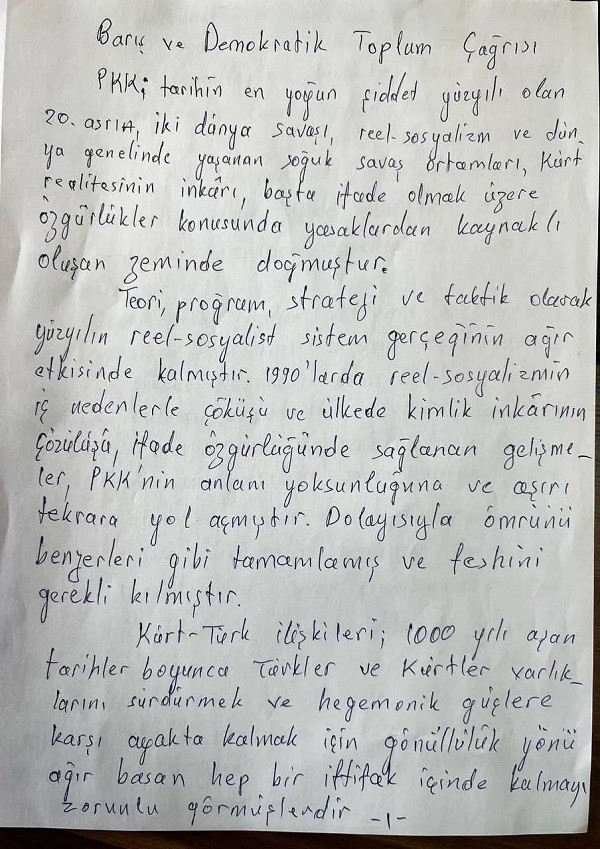 Barış ve Demokratik Toplum Çağrısı
PKK; tarihin en yoğun şiddet yüzyılı olan
20. asrın, iki dünya savaşı, reel-sosyalizm ve dün_
ya genelinde yaşanan soğuk savaş ortamları, Kürt
realitesinin inkârı, başta ifade olmak üzere
özgürlükler konusunda yasaklardan kaynaklı
oluşan zeminde doğmuştur.
Teori, program, strateji ve taktik olarak
yüzyılın reel-sosyalist sistem gerçeğinin ağır
etkisinde kalmıştır. 1990'larda reel-sosyalizmin
iç nedenlerle çöküşü ve ülkede kimlik inkârının
çözülüşü, ifade özgürlüğünde sağlanan gelişme_
ler, PKK'nin anlam yoksunluğuna ve aşırı
tekrara yol açmıştır. Dolayısıyla ömrünü
benzerleri gibi tamamlamış ve feshini
gerekli kılmıştır.
Kürt-Türk ilişkileri; 1000 yılı aşan
tarihler boyunca Türkler ve Kürtler varlık_
larını sürdürmek ve hegemonik güçlere
karşı ayakta kalmak için gönüllülük yönü
ağır basan hep bir ittifak içinde kalmayı
zorunlu görmüşlerdir -1-